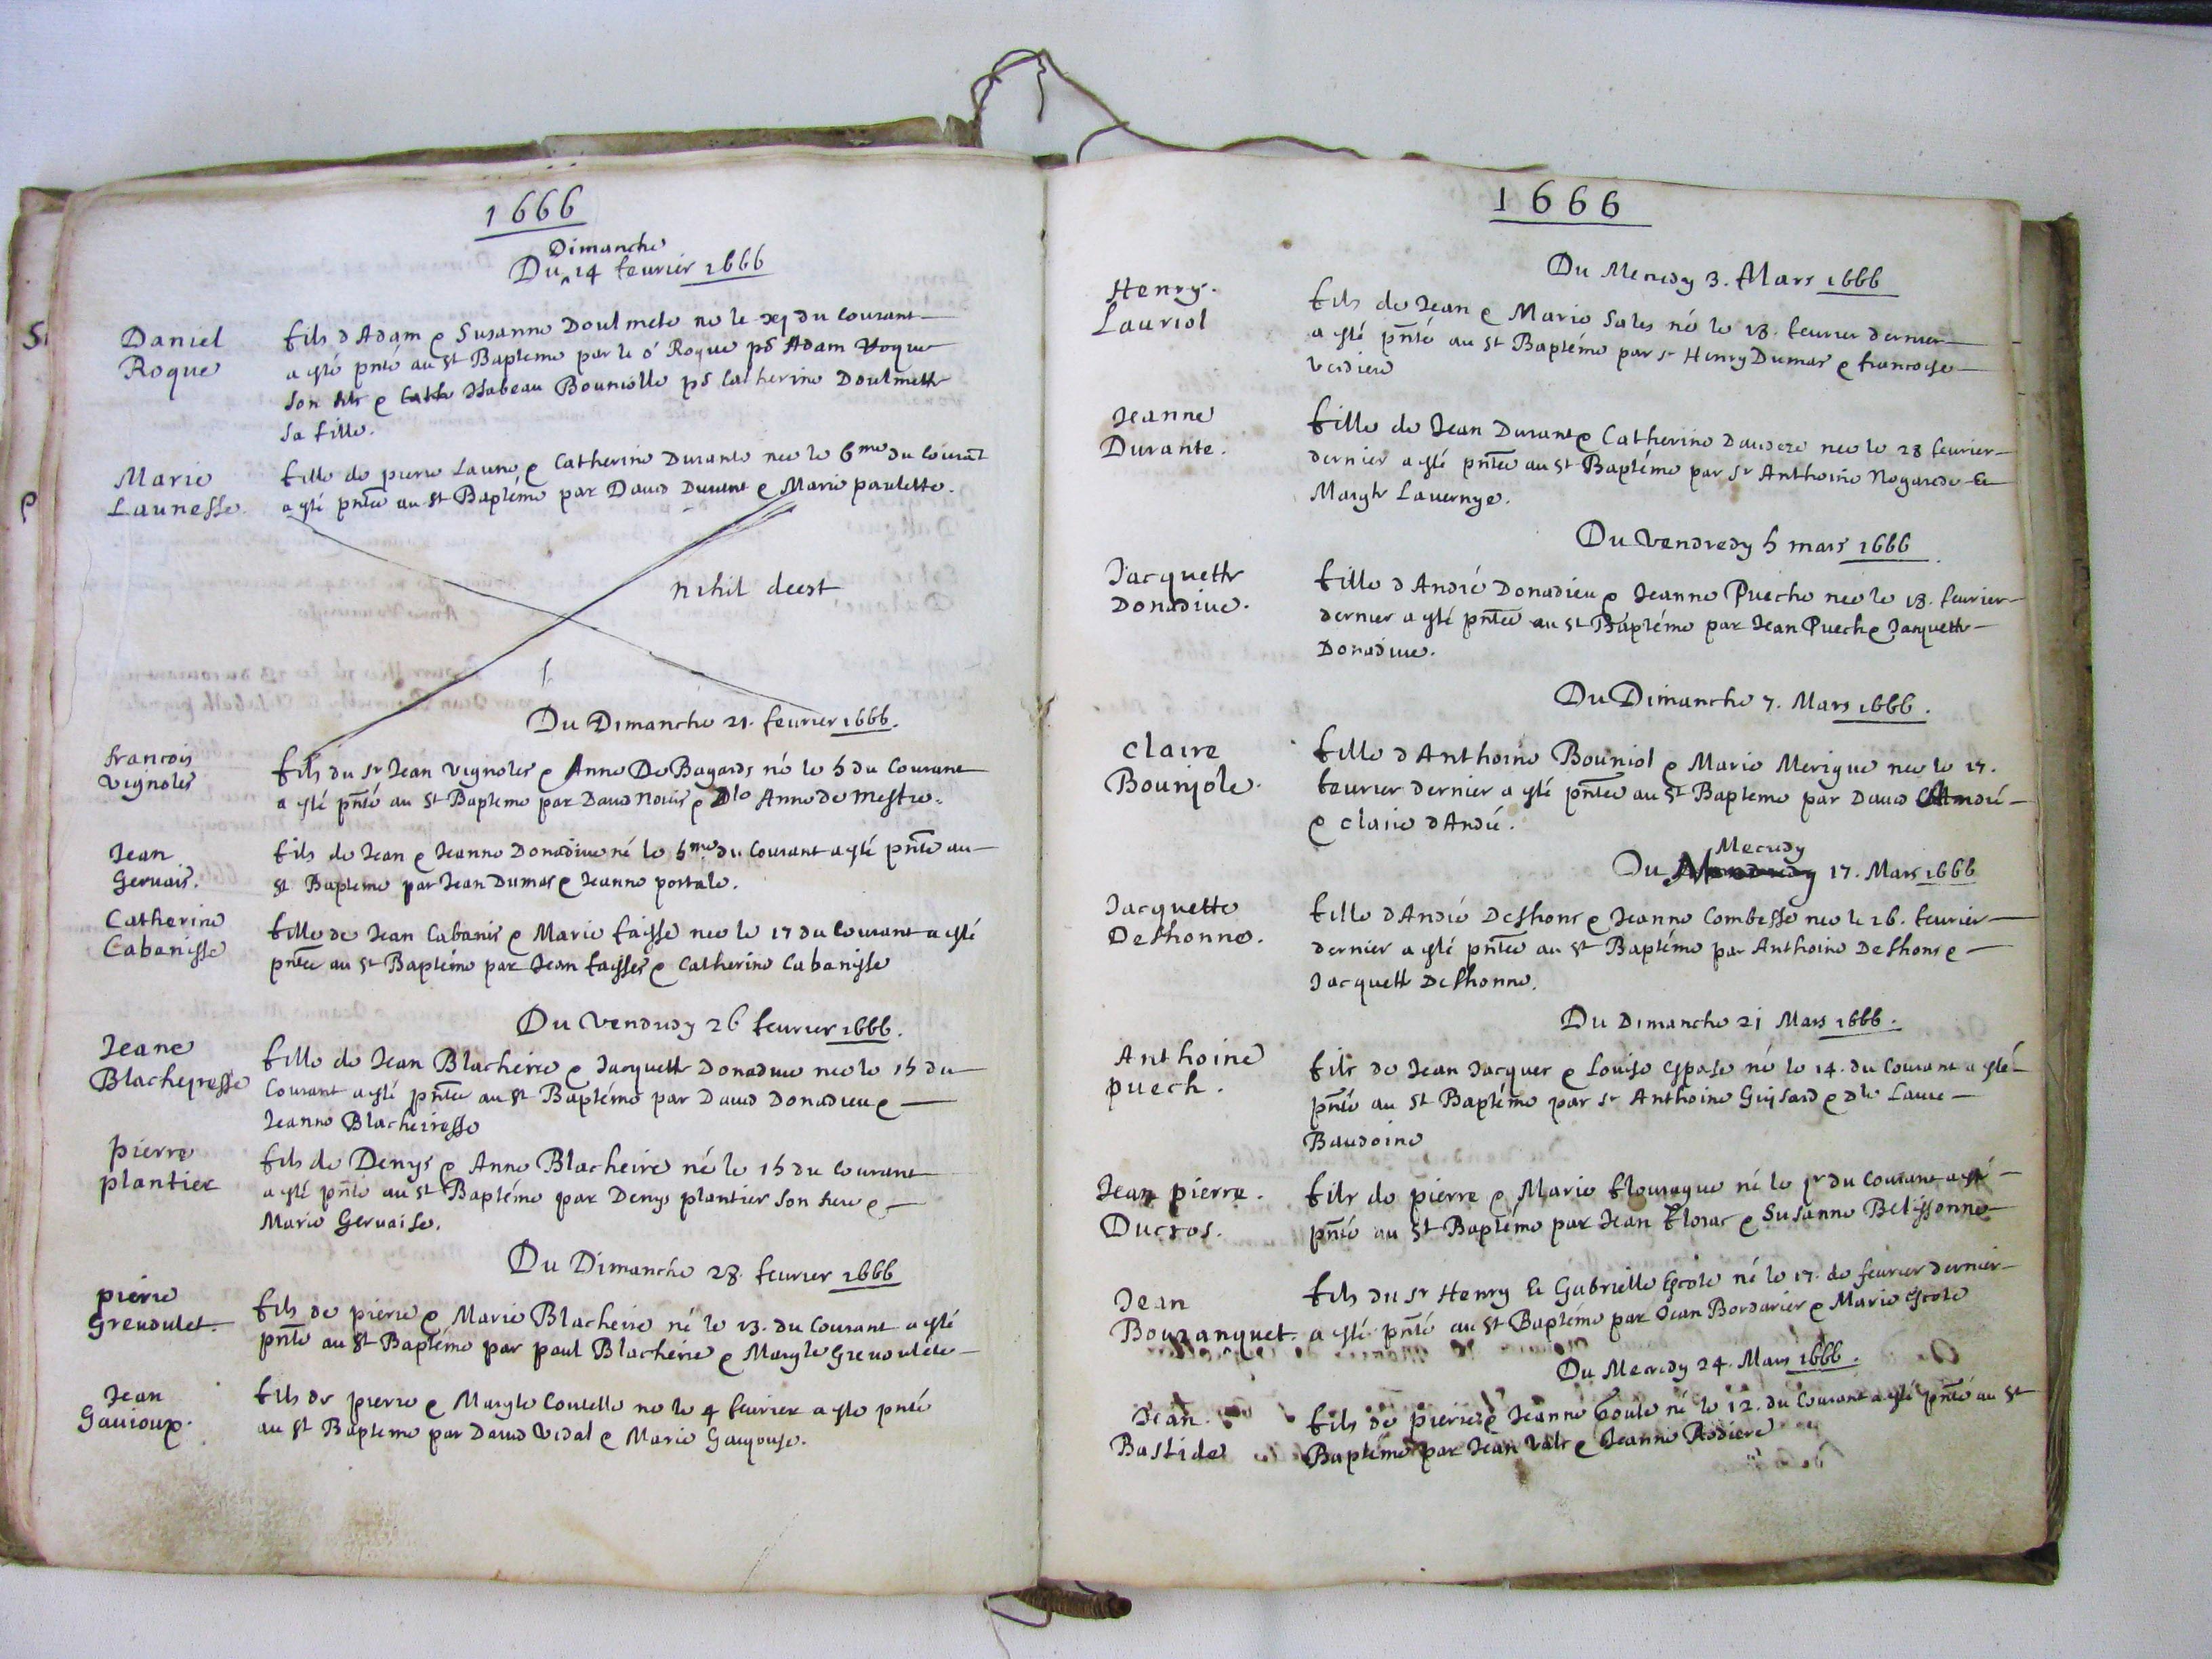 1666
Dimanche
Du 14 feurier 1666
Daniel
Roque
fils d Adam e Susanne Doulmete né le xj du Courant
a esté pnté au St Bapteme par le Roque Adam Roque
son e Isabeau Bouniolle Catherine Doulmette
sa fille.
Marie
Launesse.
fille de pierre Laune e Catherine Durante nee le 6me du Courat
a esté pntee au St Baptéme par Dauid Durant e Marie paulette.
nihil deest
Du Dimanche 21. feurier 1666.
francois
Vignoles
fils du sr Jean Vignoles e Anne De Bagards né le 5 du Courant
a esté pnté au St Bapteme par Dauid Nouis e Dle Anne de Mestre.
Jean
Geruais.
fils de Jean e Jeanne Donadiue né le 5me du Courant a esté pnté au
St Bapteme par Jean Dumas e Jeanne portale.
Catherine
Cabanisse
fille de Jean Cabanis e Marie faisse nee le 17 du Courant a esté
pntee au St Baptéme par Jean faisses e Catherine Cabanisse
Du Vendredy 26 feurier 1666.
Jeane
Blacheyresse
fille de Jean Blacheire e Jacquette Donadiue nee le 15 du
Courant a esté pntee au St Baptéme par Dauid Donadieu e
Jeanne Blacheiresse
Pierre
plantier
fils de Denys e Anne Blacheire né le 15 du Courant
a esté pnté au St Baptéme par Denys plantier son e
Marie Geruaise.
Du Dimanche 28. feurier 1666
pierre
Greuoulet.
fils de pierre e Marie Blacheire né le 13. du Courant a esté
pnté au St Baptéme par paul Blacheire e Margte Greuoulete
Jean
Gauioux.
fils de pierre e Margte Coutelle né le 4 feurier a esté pnté
au St Bapteme par Dauid Vidal e Marie Gauyouse.
1666
Du Mecredy 3. Mars 1666
Henry.
Lauriol
fils de Jean e Marie Sales né le 18. feurier dernier
a esté pnté au St Baptéme par sr Henry Dumas e francoise
Verdiere
Jeanne
Durante.
fille de Jean Durant e Catherine Daudeze nee le 28 feurier
dernier a esté pntee au St Baptéme par sr Anthoine Nogarede Et
Margte Lauernye.
Du Vendredy 5 mars 1666
Jacquette
Donadiue.
fille d André Donadieu e Jeanne Pueche nee le 18. feurier
dernier a esté pntee au St Baptéme par Jean Puech e Jacquette
Donadiue.
Du Dimanche 7. Mars 1666.
Claire
Bounjole.
fille d Anthoine Bouniol e Marie Merigue nee le 17.
feurier dernier a esté pntee au St Bapteme par Dauid André
e Claire d André.
Mecredy
Du 17. Mars 1666
Jacquette
Deshonne.
fille d André Deshons e Jeanne Combesse nee le 26. feurier
dernier a esté pntee au St Baptéme par Anthoine Deshons e
Jacquette Deshonne.
Du Dimanche 21 Mars 1666.
Anthoine
puech.
fils de Jean Jacques e Louise Espase né le 14. du Courant a esté
pnté au St Baptéme par sr Anthoine Guisard e dle Laure
Baudoine
Jean pierre.
Ducros.
fils de pierre e Marie flouragne né le pr du Courant a esté
pnté au St Baptéme par Jean florac e Susanne Belissonne
Jean
Bouzanquet.
fils du sr Henry Et Gabrielle Escole né le 17. de feurier dernier
a esté pnté au St Baptéme par Jean Bordarier e Marie Escole
Du Mecredy 24. Mars 1666.
Jean.
Bastide
fils de pierre e Jeanne Soule né le 12. du Courant a esté pnté au St
Baptéme par Jean Vals e Jeanne Rodiere